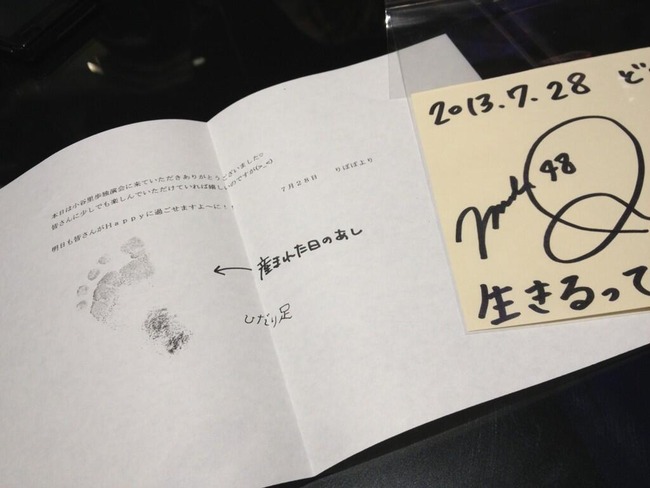 本日は小谷里歩独演会に来ていただきありがとうございました☆
皆さんに少しでも楽しんでいただけていれば嬉しいのですが(>_<)
明日も皆さんがHappyに過ごせますよ〜に！！
7月28日　りぽぽより
産まれた日のあし
ひだり足
2013.7.28 ど
48
生きるって